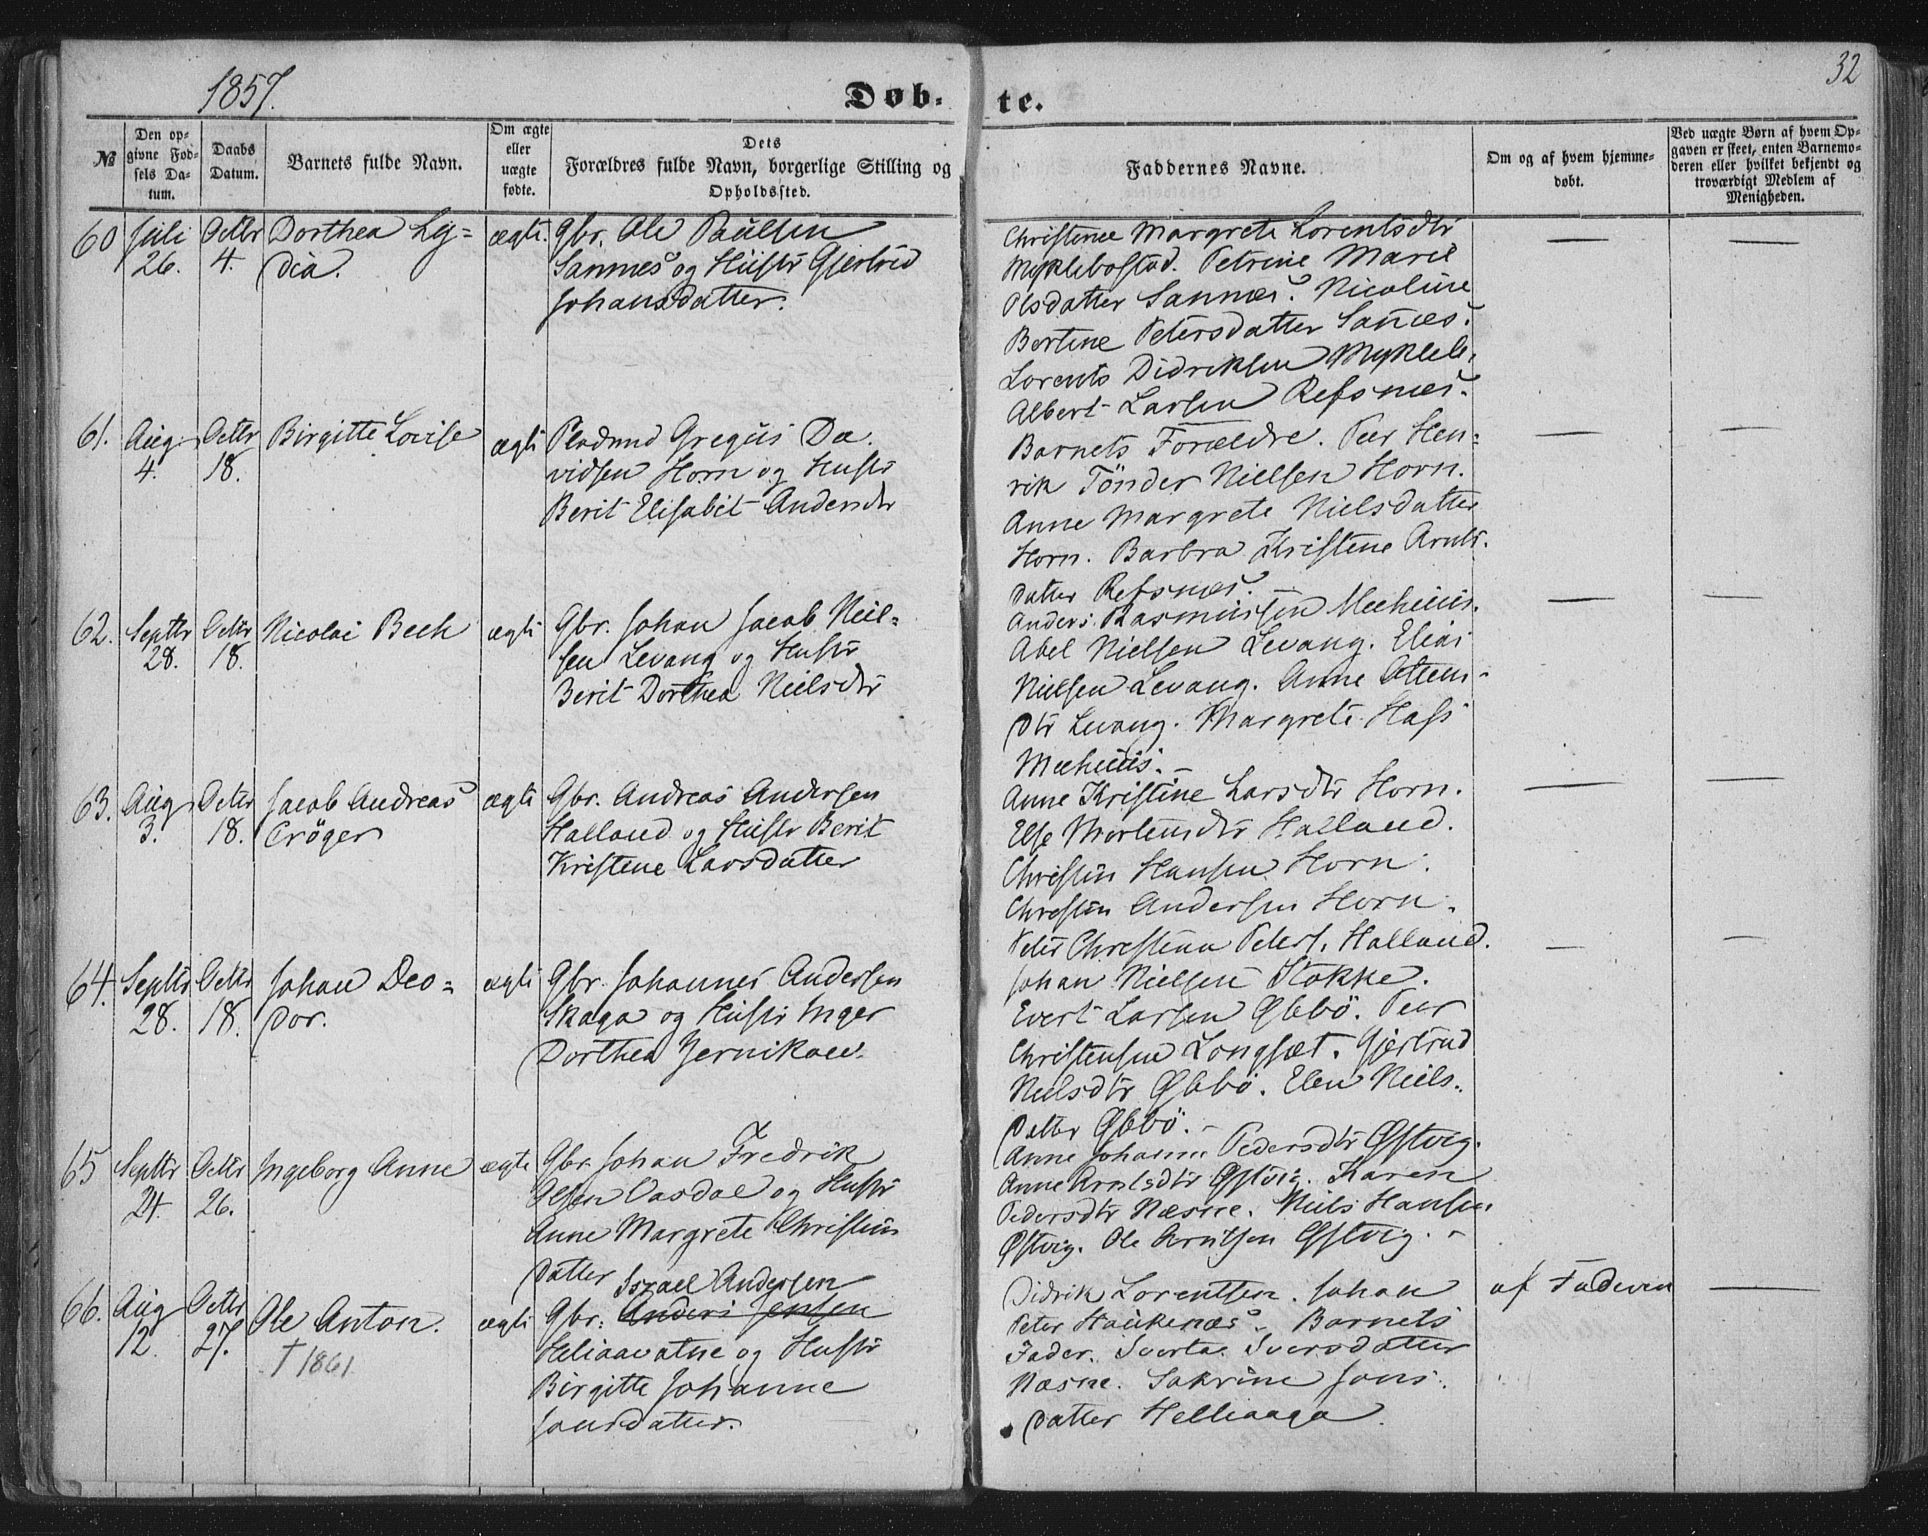 1857.
Døb-
te.
32
№
Den op-
givne Fød-
sels Da-
tum.
Daabs
Datum.
Barnets fulde Navn.
Om ægte
eller
uægte
fødte.
Dets
Forældres fulde Navn, borgerlige Stilling og
Opholdssted.
Faddernes Navne.
Om og af hvem hjemme-
døbt.
Ved uægte Børn af hvem Op-
gaven er skeet, enten Barnemo-
deren eller hvilket bekjendt og
troværdigt Medlem af
Menigheden.
60 Juli 26. Octbr 4. Dorthea Ly=
dia.
ægte.
Gbr. Ole Paulsen
Sannes og Hustr Gjertrud
Johansdatter.
Christence Margrete Lorentsdtr
Myklebostad. Petrine Marie
Olsdatter Sannes. Nicoline
Bertine Petersdatter Sannes.
Lorents Didriksen Mykleb.
Albert Larsen Refsnes.
61. Aug. 4. Octbr 18. Birgitte Lovise
ægte
Pladsmd Gregus Da-
vidsen Horn og Hustr
Berit Elisabet Andersdr
Barnets Forældre. Peer Hen=
rik Tönder Nielsen Horn.
Anne Margrete Nielsdatter
Horn. Barbra Kristene Arnts-
datter Refsnes.
62. Septbr 28. Octbr 18. Nicolai Bech
ægte
Gbr. Johan Jacob Niel=
sen Levang og Hustr
Berit Dorthea Nielsdtr
Anders Rasmussen Meehuus.
Abel Nielsen Levang. Elias
Nielsen Levang. Anne Ottens-
dtr Levang. Margrete Hass
Meehuus.
63. Aug 3. Octbr 18. Jacob Andreas
Crøger
ægte
Gbr. Andreas Andersen
Halland og Hustr Berit
Kristene Larsdatter
Anne Kristine Larsdtr Horn.
Else Mortensdtr Halland.
Christen Hansen Horn.
Christen Andersen Horn.
Peter Christian Peters. Halland.
64. Septbr 28. Octbr 18. Johan Deo=
dor.
ægte
Gbr. Johannes Andersen
Skaga og Hustr Inger
Dorthea Jernikoev.
Johan Nielsen Stokke.
Evert Larsen Øbbö. Peer
Christensen Longset. Gjertrud
Nielsdtr Øbbö. Elen Niels-
datter Øbbö.
65 Septbr 24. Octbr 26. Ingeborg Anne
ægte
Gbr. Johan Fredrik
Olsen Vasdal og Hustr
Anne Margrete Christens
datter
Anne Johanne Pedersdtr Østvig.
Anne Arntsdtr Østvig. Karen
Pedersdtr Næsne. Niels Hansen
Østvig. Ole Arntsen Østvig.
66. Aug 12. Octbr 27. Ole Anton.
† 1861
ægte
Israel Andersen
Gbr. Anders Jensen
Heliaavatne og Hustr
Birgitte Johanne
Jonsdatter.
Didrik Lorentsen. Johan
Peter Haukenæs. Barnets
Fader. Sverta Sversdatter
Næsne. Sakrine Jons-
datter Helliaaga.
af Faderen